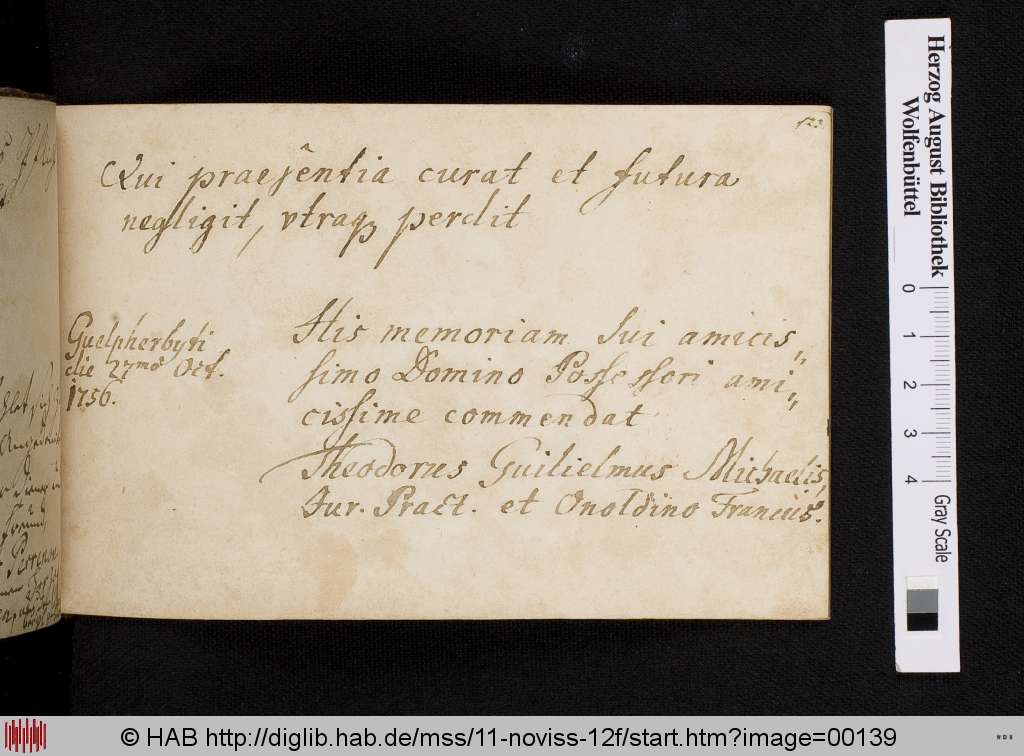 123
Qui praesentia curat et futura
negligit, vtraq perdit
Guelpherbyti
die 27mo Oct.
1756.
His memoriam sui amicis„
simo Domino Possessori ami„
cissime commendat
Theodorus Guilielmus Michaelis,
Jur. Pract. et Onoldino Francus.
Herzog August Bibliothek
Wolfenbüttel
0 1 2 3 4
Gray Scale
© HAB http://diglib.hab.de/mss/11-noviss-12f/start.htm?image=00139